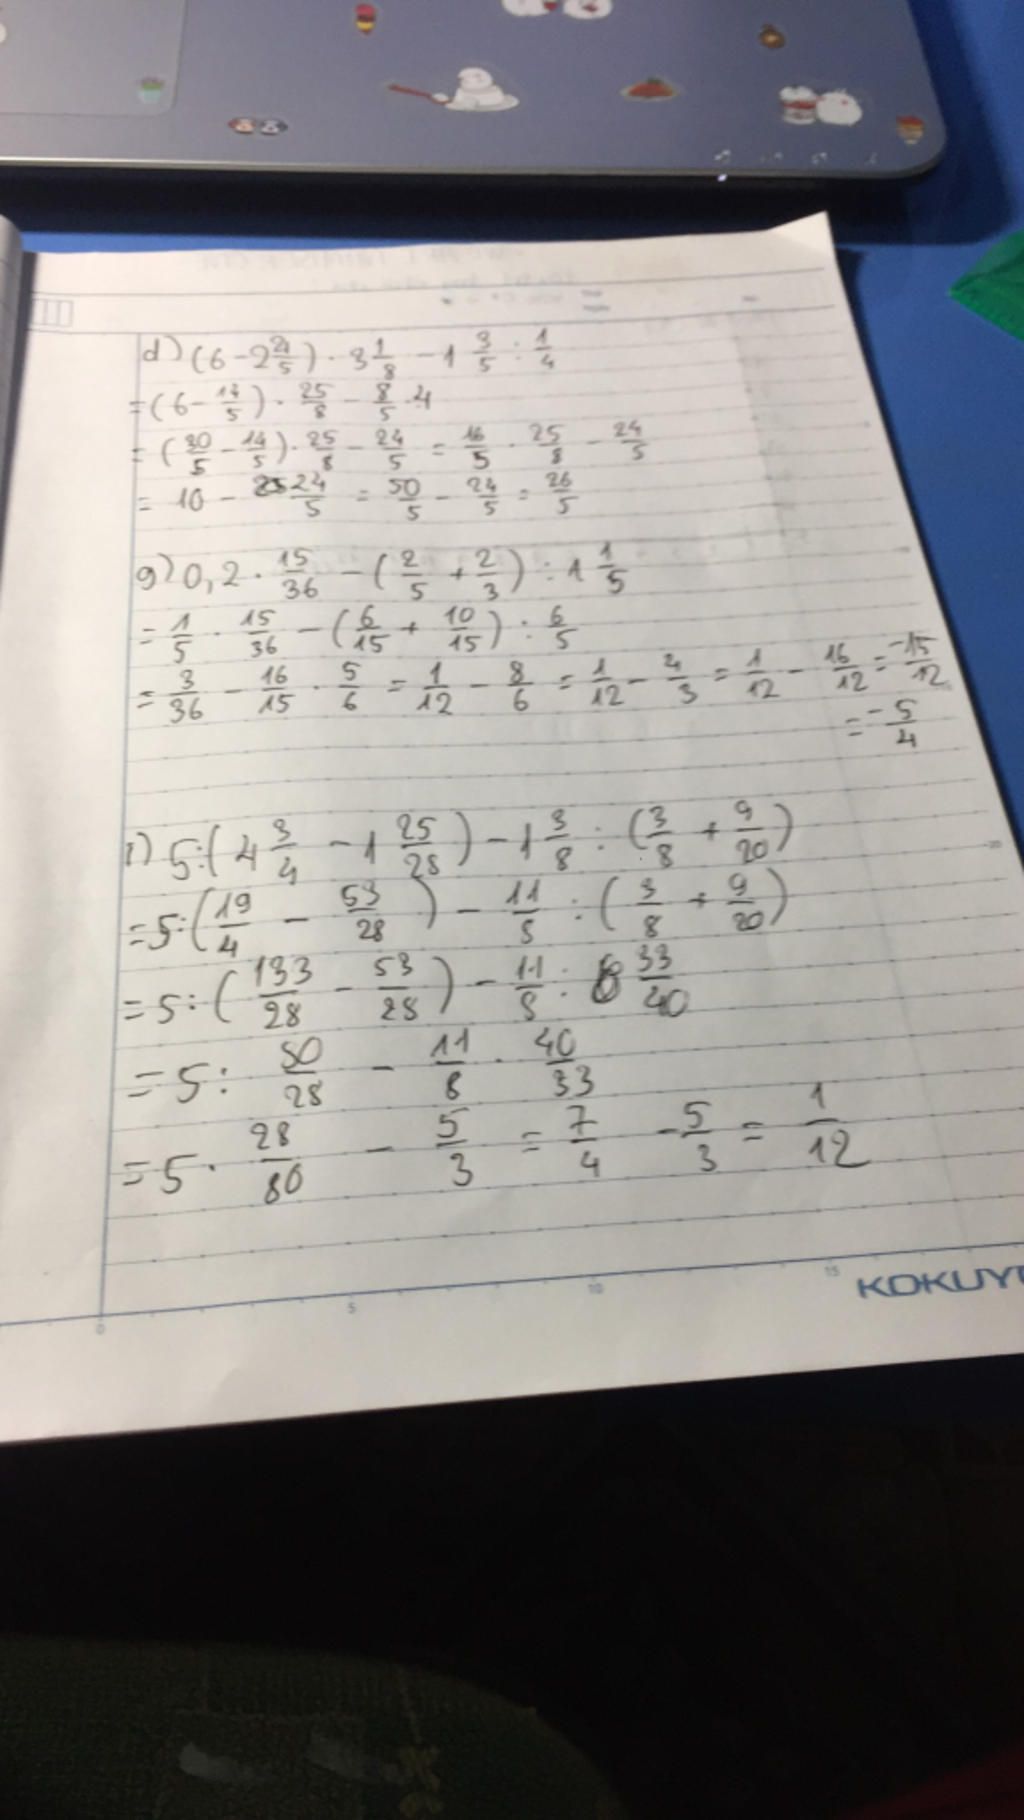 d) (6 - 2 4/5) · 3 1/8 - 1 3/5 : 1/4
= (6 - 14/5) · 25/8 - 8/5 · 4
= (30/5 - 14/5) · 25/8 - 24/5 = 16/5 · 25/8 - 24/5
= 10 - 24/5 = 50/5 - 24/5 = 26/5
g) 0,2 · 15/36 - (2/5 + 2/3) : 1 1/5
= 1/5 · 15/36 - (6/15 + 10/15) : 6/5
= 3/36 - 16/15 · 5/6 = 1/12 - 8/6 = 1/12 - 4/3 = 1/12 - 16/12 = -15/12
= -5/4
i) 5 : (4 3/4 - 1 25/28) - 1 3/8 : (3/8 + 9/20)
= 5 : (19/4 - 53/28) - 11/8 : (3/8 + 9/20)
= 5 : (133/28 - 53/28) - 11/8 : 33/40
= 5 : 80/28 - 11/8 · 40/33
= 5 · 28/80 - 5/3 = 7/4 - 5/3 = 1/12
0 5 10 15